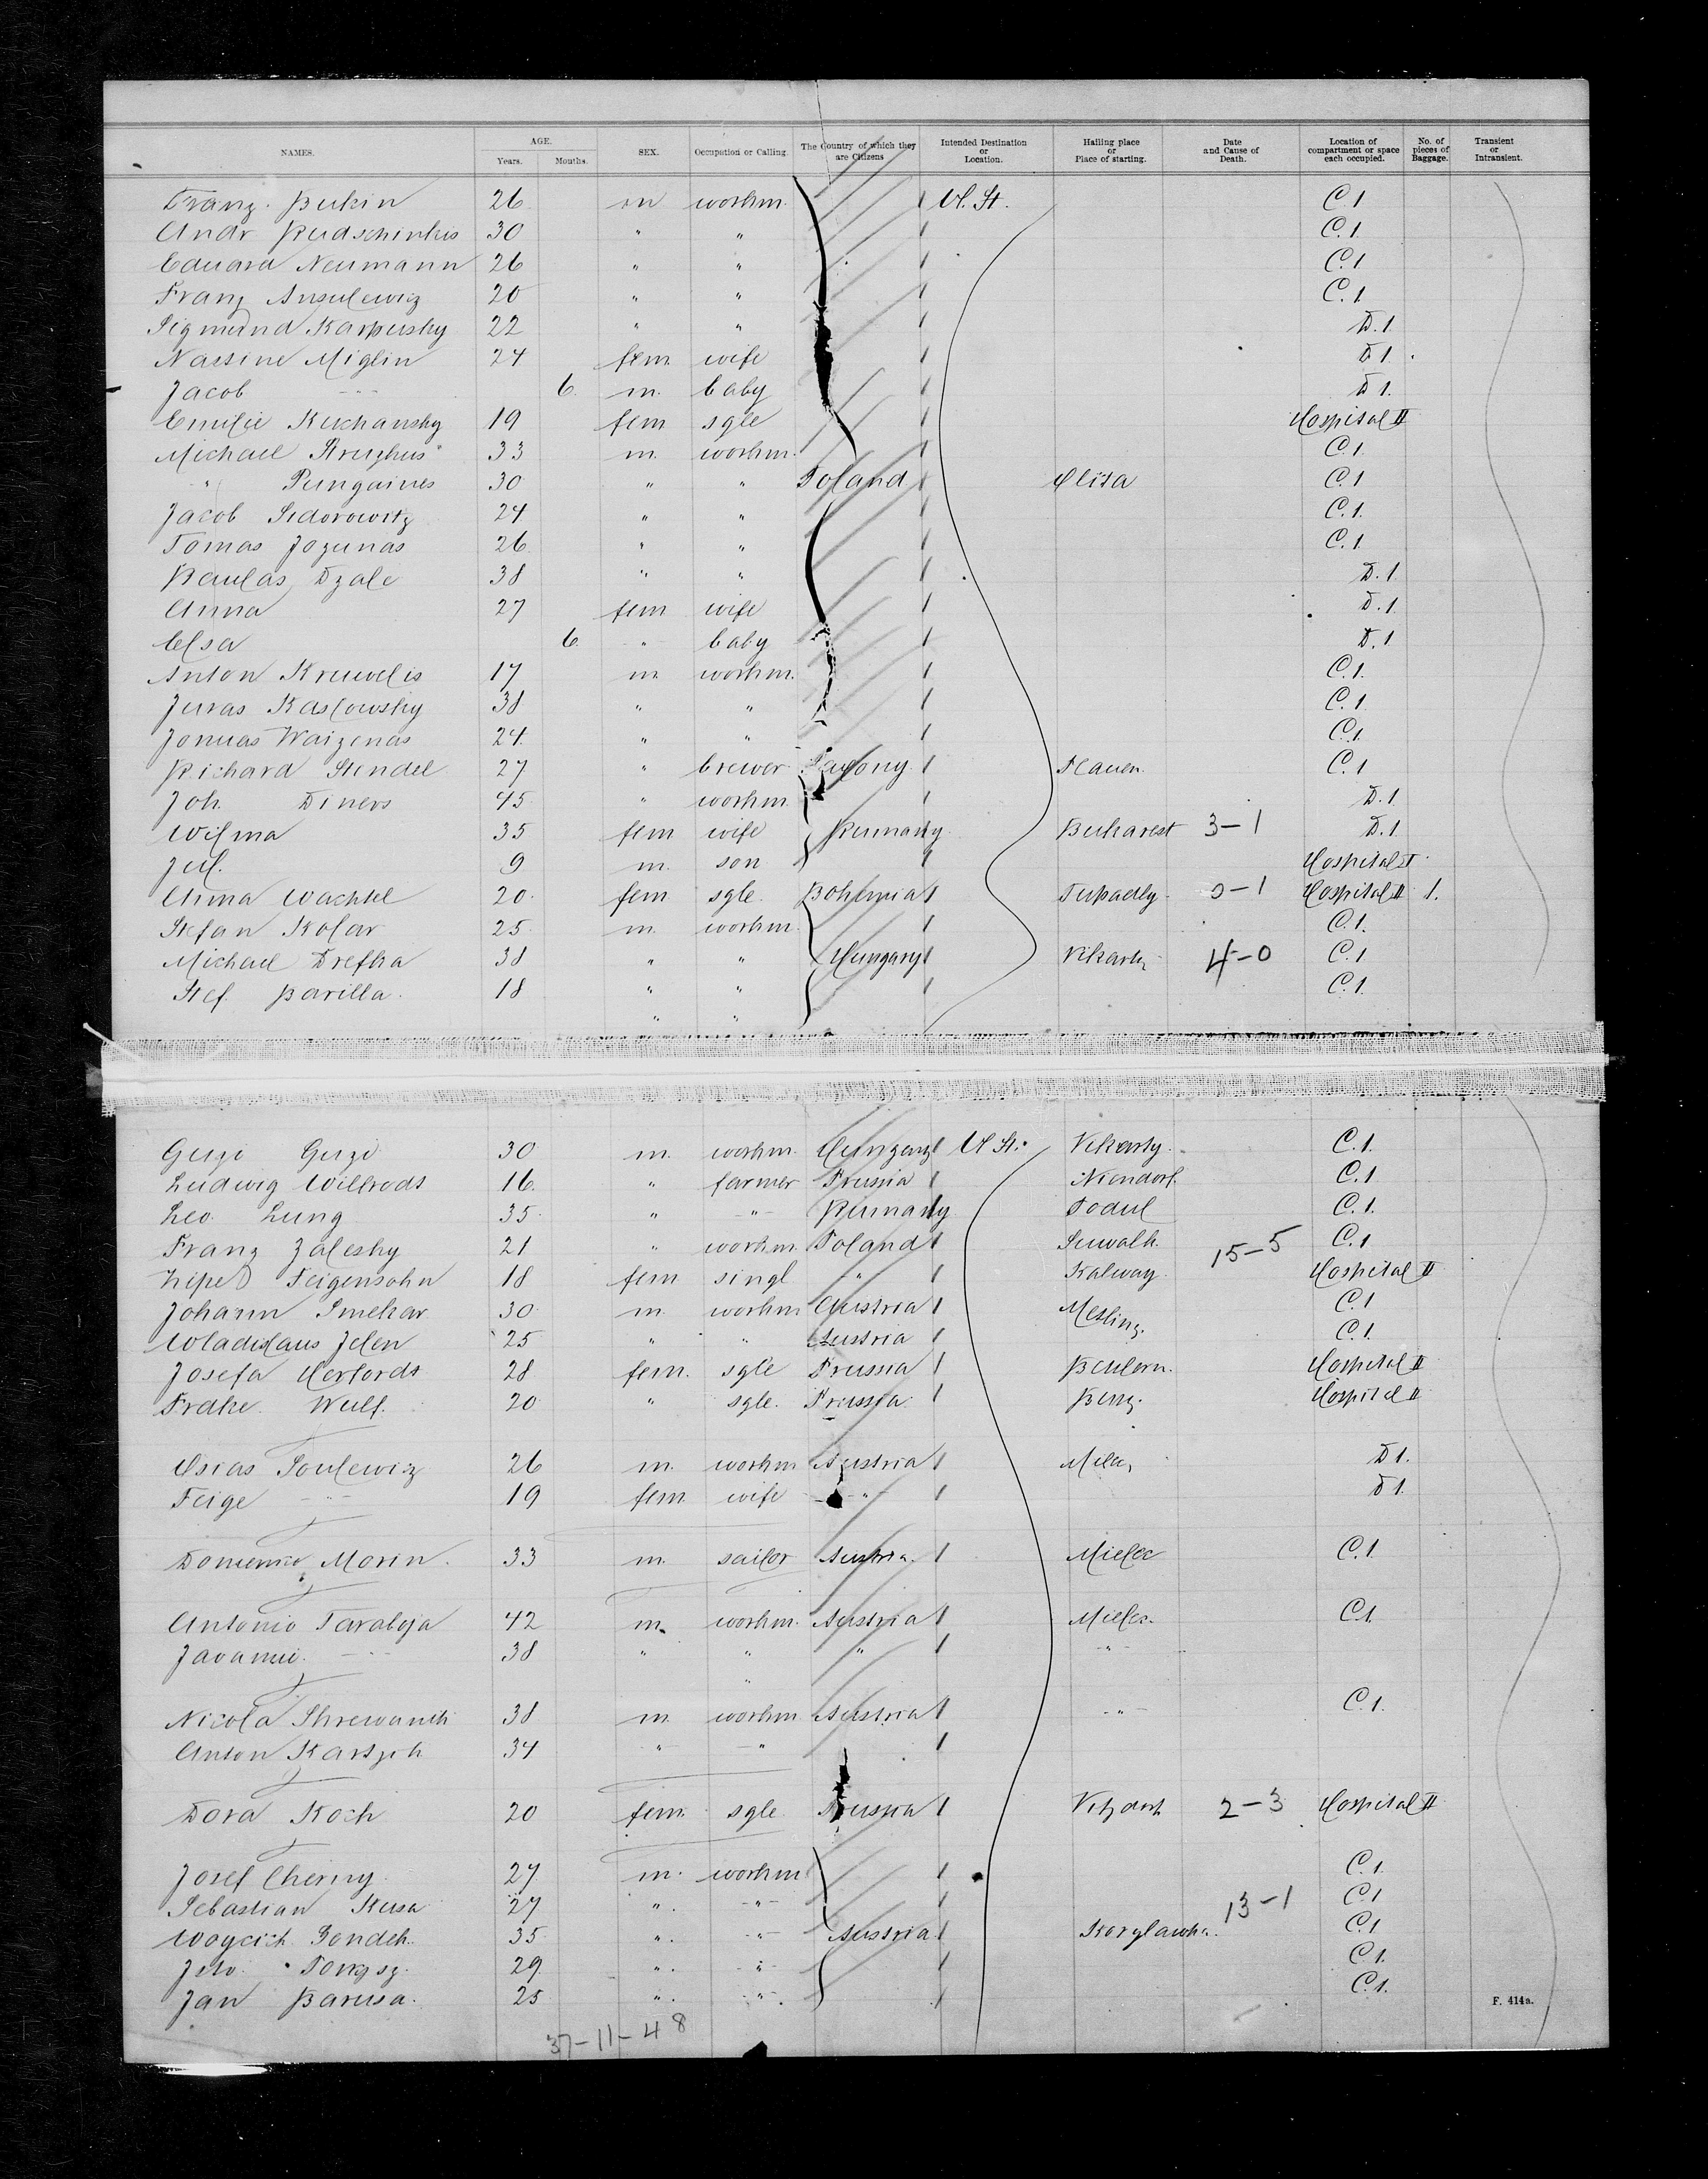 NAMES. AGE. Years. Months. SEX. Occupation or Calling. The Country of which they are Citizens Intended Destination or Location. Hailing place or Place of starting. Date and Cause of Death. Location of compartment or space each occupied. No. of pieces of Baggage. Transient or Intransient.
Franz 26 m workm. U. St. C. 1
Andr Rudschinkis 30 " " C. 1.
Eduard Neumann 26 " " C. 1
Franz Ansulewiz 20 " " C. 1.
Sigmund Karpusky 22 " " D. 1
Miglin 24 fem. wife D 1.
Jacob -"- 6. m. baby D 1.
Emilie Kuchansky 19 fem sgle Hospital II
Michael 33 m. workm. C. 1.
" Pungaines 30 " " Poland C. 1
Jacob Sidorowitz 24 " " C. 1.
Tomas Jozunas 26 " " C. 1.
Paulas Dzale 38 " " D. 1.
Anna 27 fem wife D. 1
Elsa 6. " baby D. 1
Anton Kruwelis 17 m workm. C. 1.
Juras Kaslowsky 38 " " C. 1.
Jonuas Waizenas 24. " " C. 1
Richard Stendel 27 " brewer Saxony Plauen C. 1
Joh. Diners 45 " workm. D. 1.
Wilma 35 fem wife Rumany Bukarest 3-1 D. 1.
Jul. 9 m. son Hospital II
Anna Wachtel 20. fem sgle. Bohemia Tupadly 0-1 Hospital II 1.
Stefan Kolar 25 m. workm. C. 1.
Michael Drefka 38 " " Hungary 4-0 C. 1
Stef. Barilla. 18 " " C. 1.
" "
30 m. workm. Hungary U. St. C. 1.
Ludwig Willrodt 16. " farmer Prussia Niendorf. C. 1
Leo Lung 35. " -"- Rumany Podul C. 1.
Franz Zalesky 21 " workm. Poland Suwalk. 15-5 C. 1
Feigensohn 18 fem singl -"- Kalway Hospital II
Johann Smekar 30 m. workm Austria Mesling. C. 1
Wladislaus Jelen 25 " " Austria C. 1.
Josefa Herfordt 28 fem. sgle Prussia Hospital II
Wulf. 20 " sgle. Prussia. Hospital II
Osias 26 m. workm Austria D 1.
Feige -"- 19 fem. wife -"- D 1.
Domenico Morin. 33 m. sailor Austria. Mielec C. 1.
Antonio Taraboja 42 m. workm. Austria Mielec. C. 1.
-"- 38 " " " -"-
"
Nicola 38 m. workm Austria -"- C. 1.
Anton 34 -"- -"-
Dora Koch 20 fem. sgle. Prussia 2-3 Hospital II
Josef Cherny 27 m. workm C. 1.
Sebastian Kusa 27 ". -"- 13-1 C. 1
35 ". -"- Austria. C. 1
29 ". -"- C. 1.
Jan Barusa. 25 ". -"- C. 1.
F. 414a.
37-11-48